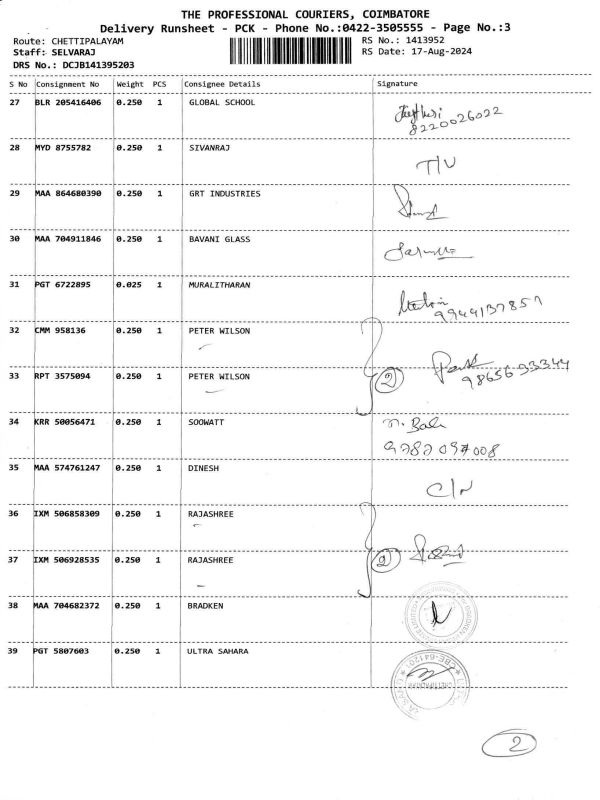 THE PROFESSIONAL COURIERS, COIMBATORE
Delivery Runsheet - PCK - Phone No.:0422-3505555 - Page No.:3
Route: CHETTIPALAYAM RS No.: 1413952
Staff: SELVARAJ RS Date: 17-Aug-2024
DRS No.: DCJB141395203
S No Consignment No Weight PCS Consignee Details Signature
27 BLR 205416406 0.250 1 GLOBAL SCHOOL
8220026022
28 MYD 8755782 0.250 1 SIVANRAJ
T/U
29 MAA 864680390 0.250 1 GRT INDUSTRIES
30 MAA 704911846 0.250 1 BAVANI GLASS
31 PGT 6722895 0.025 1 MURALITHARAN
9944137857
32 CMM 958136 0.250 1 PETER WILSON
33 RPT 3575094 0.250 1 PETER WILSON
2
34 KRR 50056471 0.250 1 SOOWATT
35 MAA 574761247 0.250 1 DINESH
C/N
36 IXM 506858309 0.250 1 RAJASHREE
37 IXM 506928535 0.250 1 RAJASHREE
2
38 MAA 704682372 0.250 1 BRADKEN
39 PGT 5807603 0.250 1 ULTRA SAHARA
2